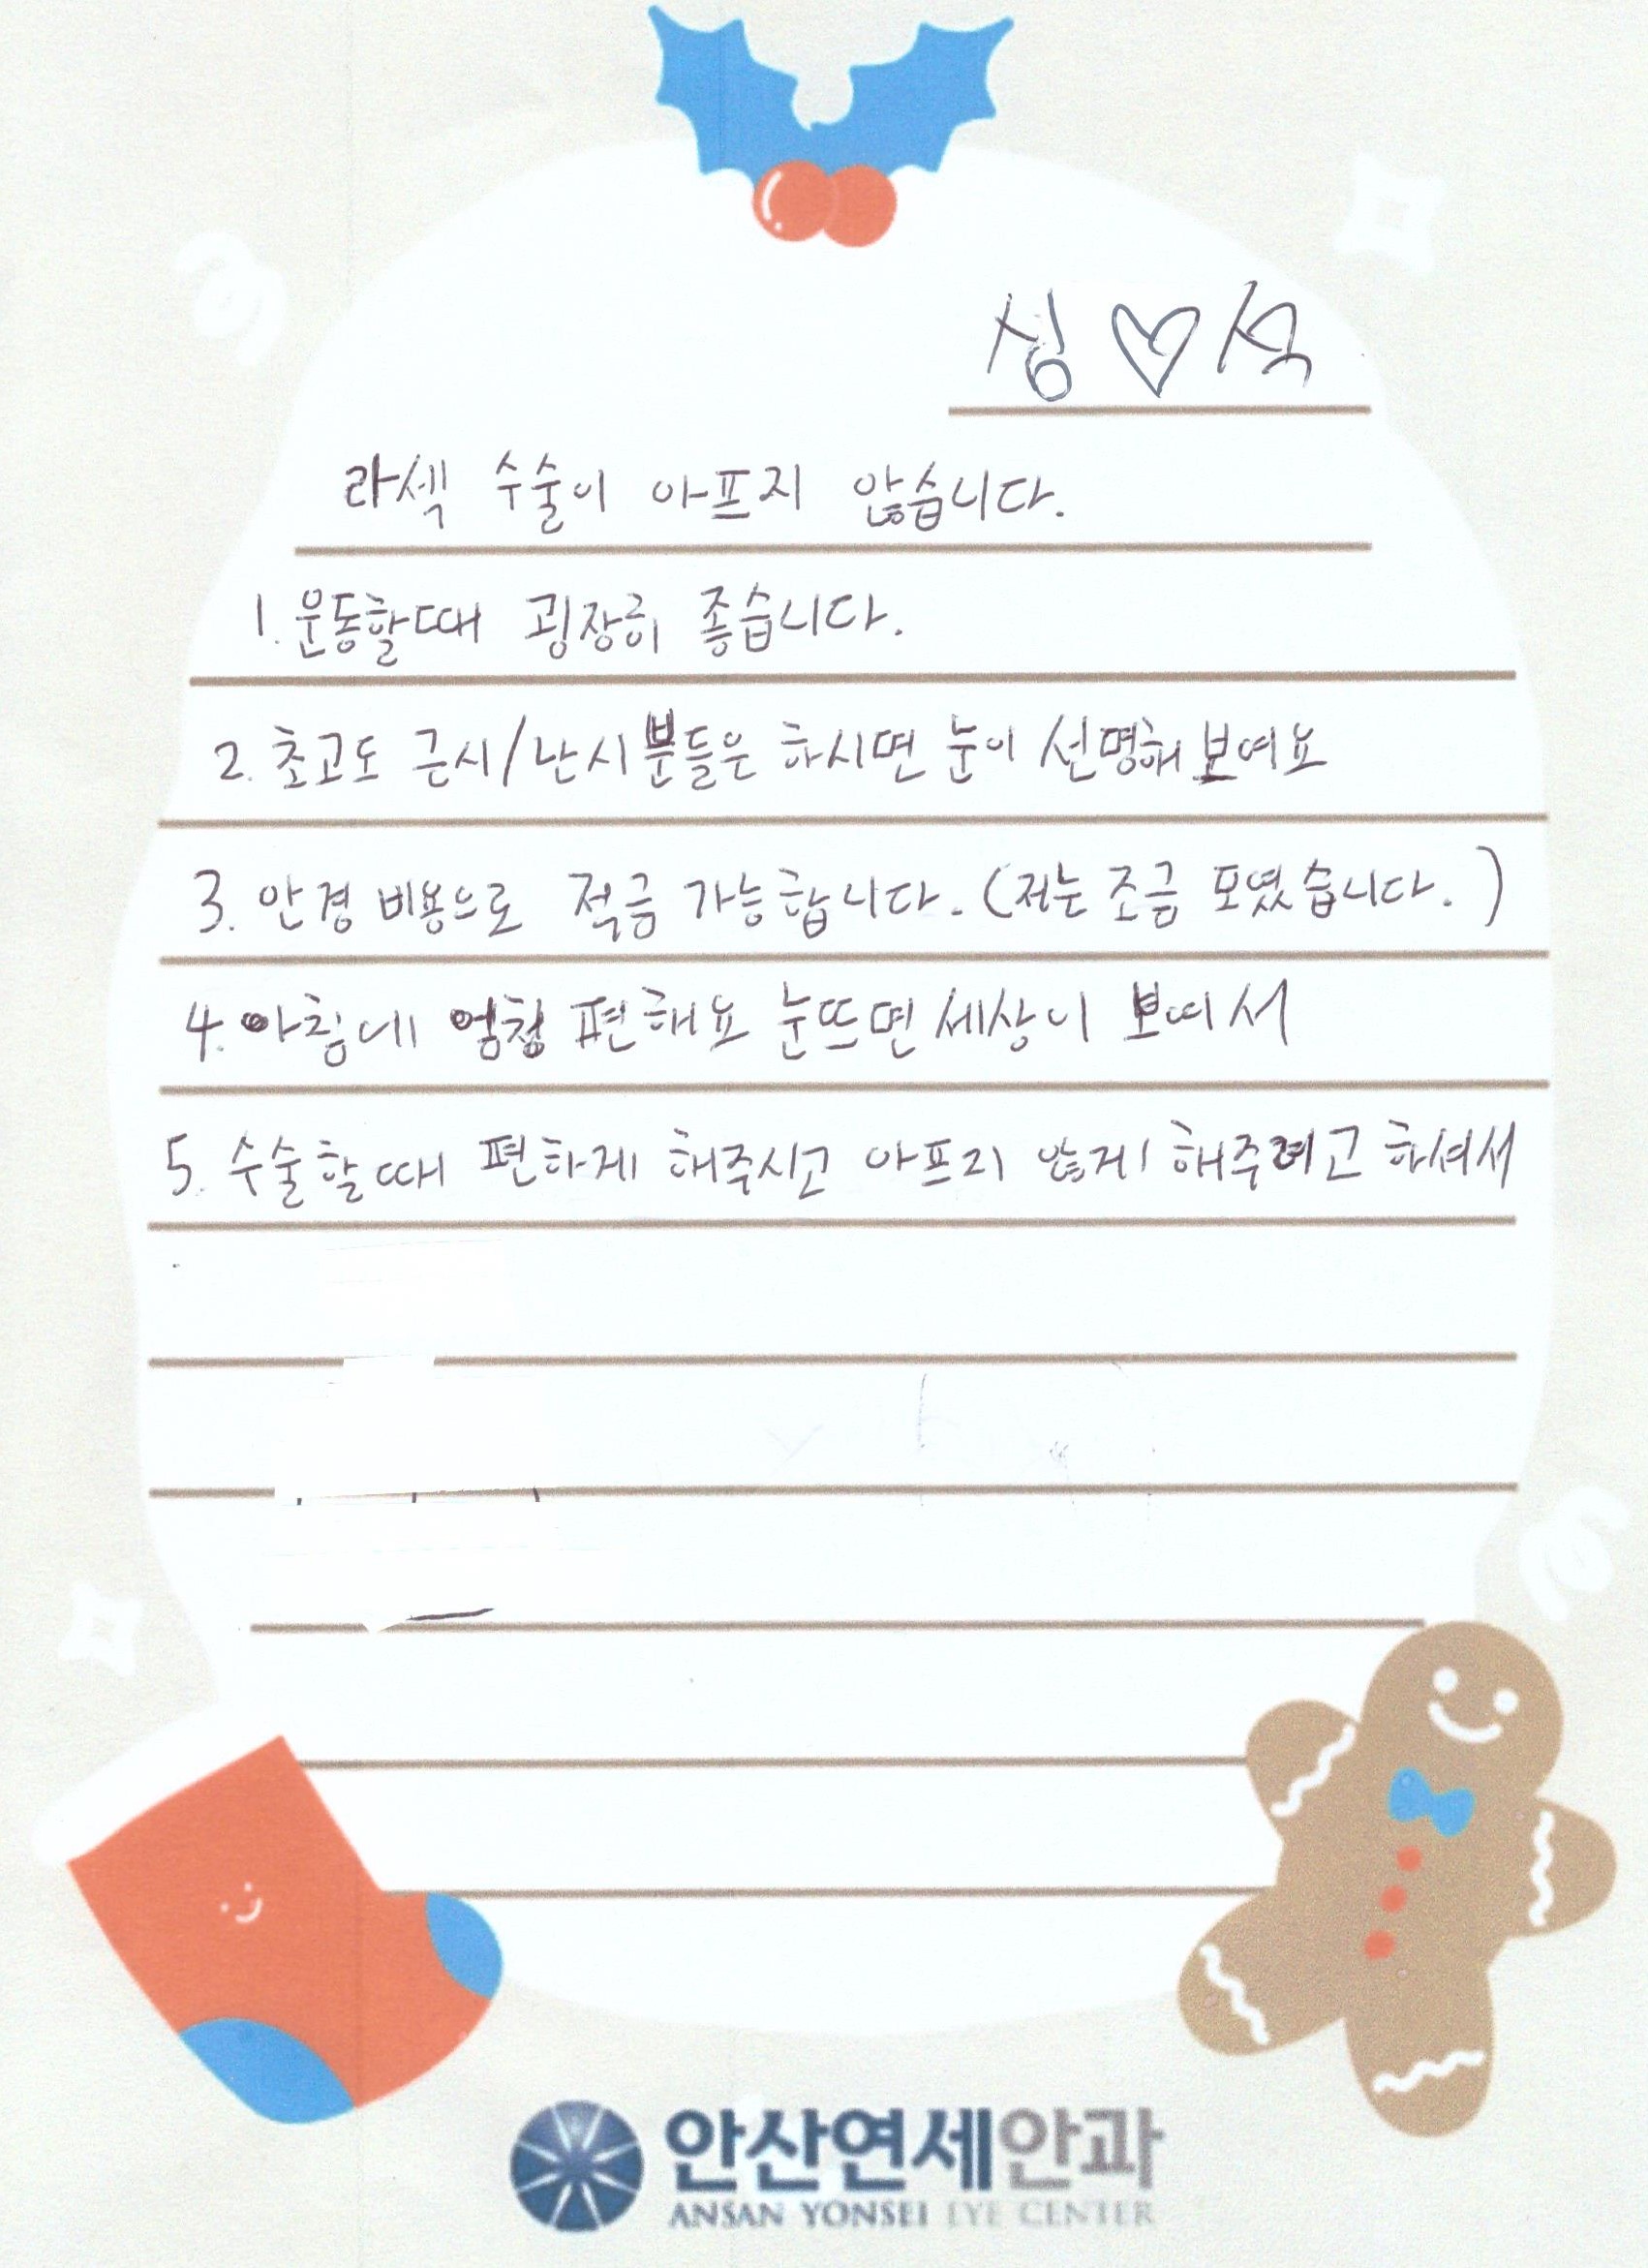 심♡석
라섹 수술이 아프지 않습니다.
1. 운동할때 굉장히 좋습니다.
2. 초고도 근시/난시분들은 하시면 눈이 선명해 보여요
3. 안경 비용으로 적금 가능합니다. (저는 조금 모였습니다.)
4. 아침에 엄청 편해요 눈뜨면 세상이 보여서
5. 수술할때 편하게 해주시고 아프지 않게 해주려고 하셔서
안산연세안과
ANSAN YONSEI EYE CENTER